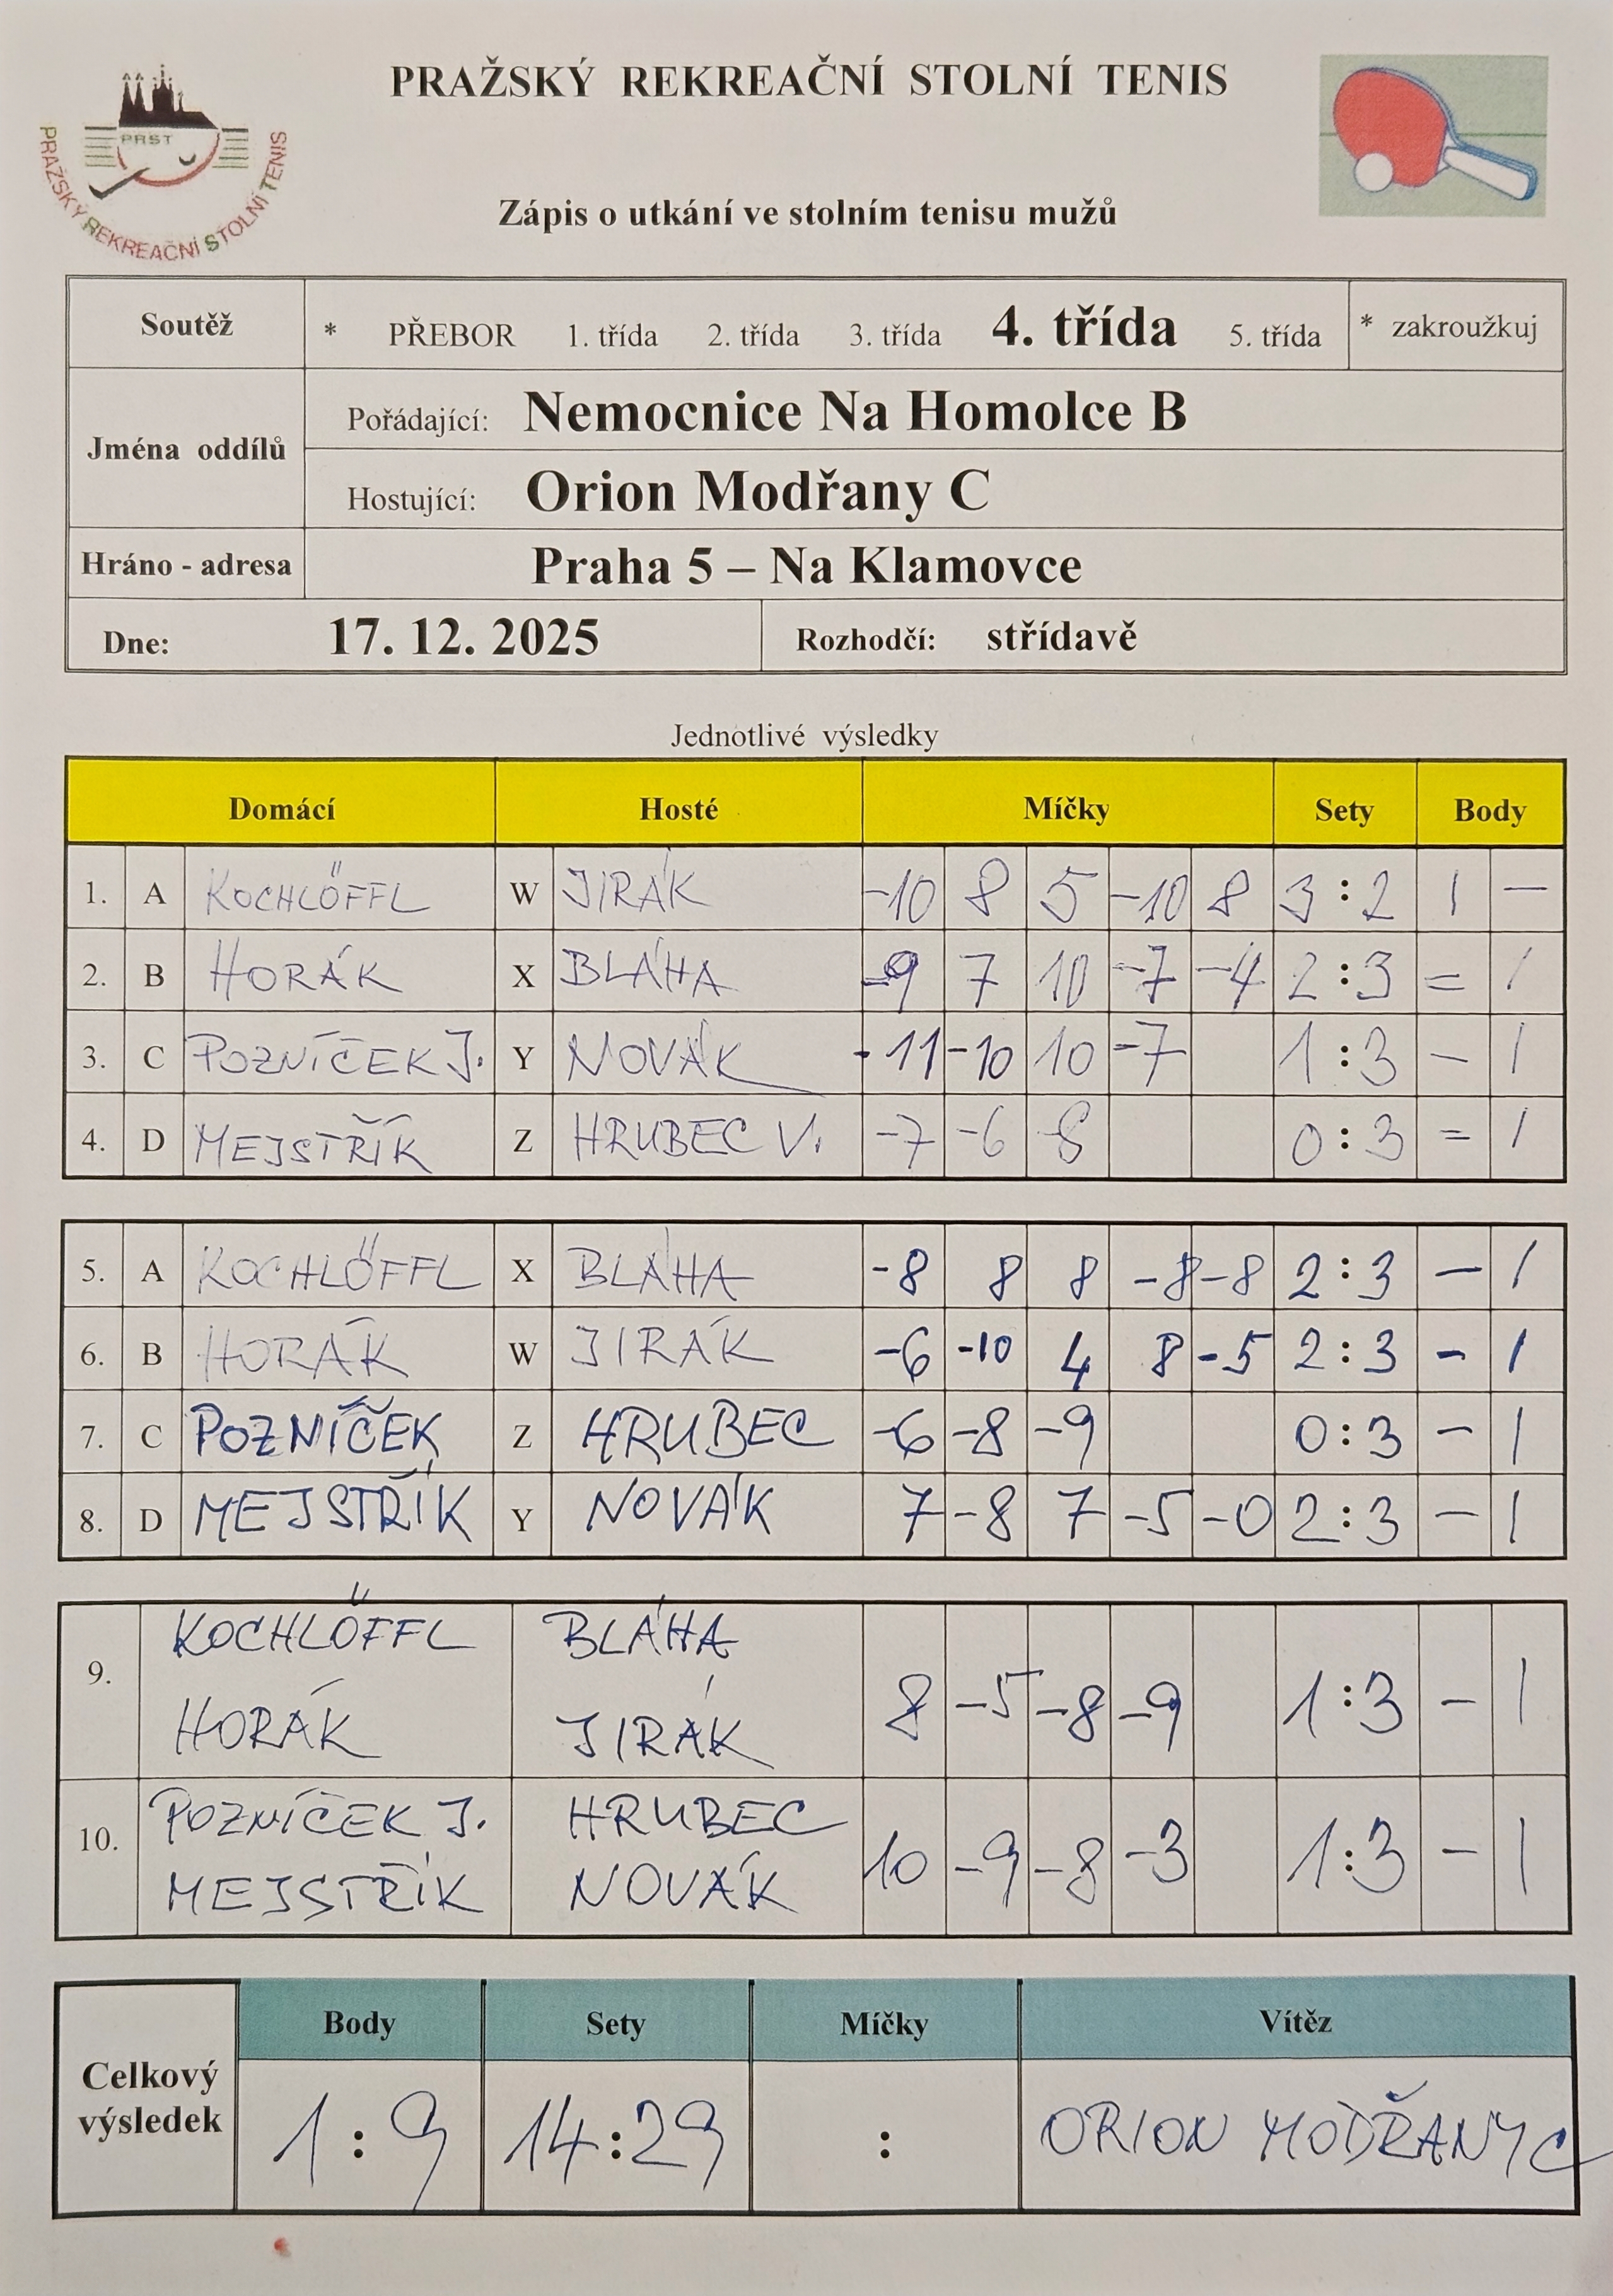 PRAŽSKÝ REKREAČNÍ STOLNÍ TENIS
PRST
PRAŽSKÝ REKREAČNÍ STOLNÍ TENIS
Zápis o utkání ve stolním tenisu mužů
Soutěž * PŘEBOR 1. třída 2. třída 3. třída 4. třída 5. třída * zakroužkuj
Jména oddílů
Pořádající: Nemocnice Na Homolce B
Hostující: Orion Modřany C
Hráno - adresa Praha 5 – Na Klamovce
Dne: 17. 12. 2025 Rozhodčí: střídavě
Jednotlivé výsledky
Domácí Hosté Míčky Sety Body
1. A KOCHLÖFFL W JIRÁK -10 8 5 -10 8 3 : 2 1 –
2. B HORÁK X BLÁHA -9 7 10 -7 -4 2 : 3 = 1
3. C POZNÍČEK J. Y NOVÁK -11 -10 10 -7 1 : 3 – 1
4. D MEJSTŘÍK Z HRUBEC V. -7 -6 -8 0 : 3 = 1
5. A KOCHLÖFFL X BLÁHA -8 8 8 -8 -8 2 : 3 – 1
6. B HORÁK W JIRÁK -6 -10 4 8 -5 2 : 3 – 1
7. C POZNÍČEK Z HRUBEC -6 -8 -9 0 : 3 – 1
8. D MEJSTŘÍK Y NOVÁK 7 -8 7 -5 -0 2 : 3 – 1
KOCHLÖFFL BLÁHA
9. 8 -5 -8 -9 1 : 3 – 1
HORÁK JIRÁK
POZNÍČEK J. HRUBEC
10. 10 -9 -8 -3 1 : 3 – 1
MEJSTŘÍK NOVÁK
Body Sety Míčky Vítěz
Celkový výsledek
1 : 9 14 : 29 : ORION MODŘANY C